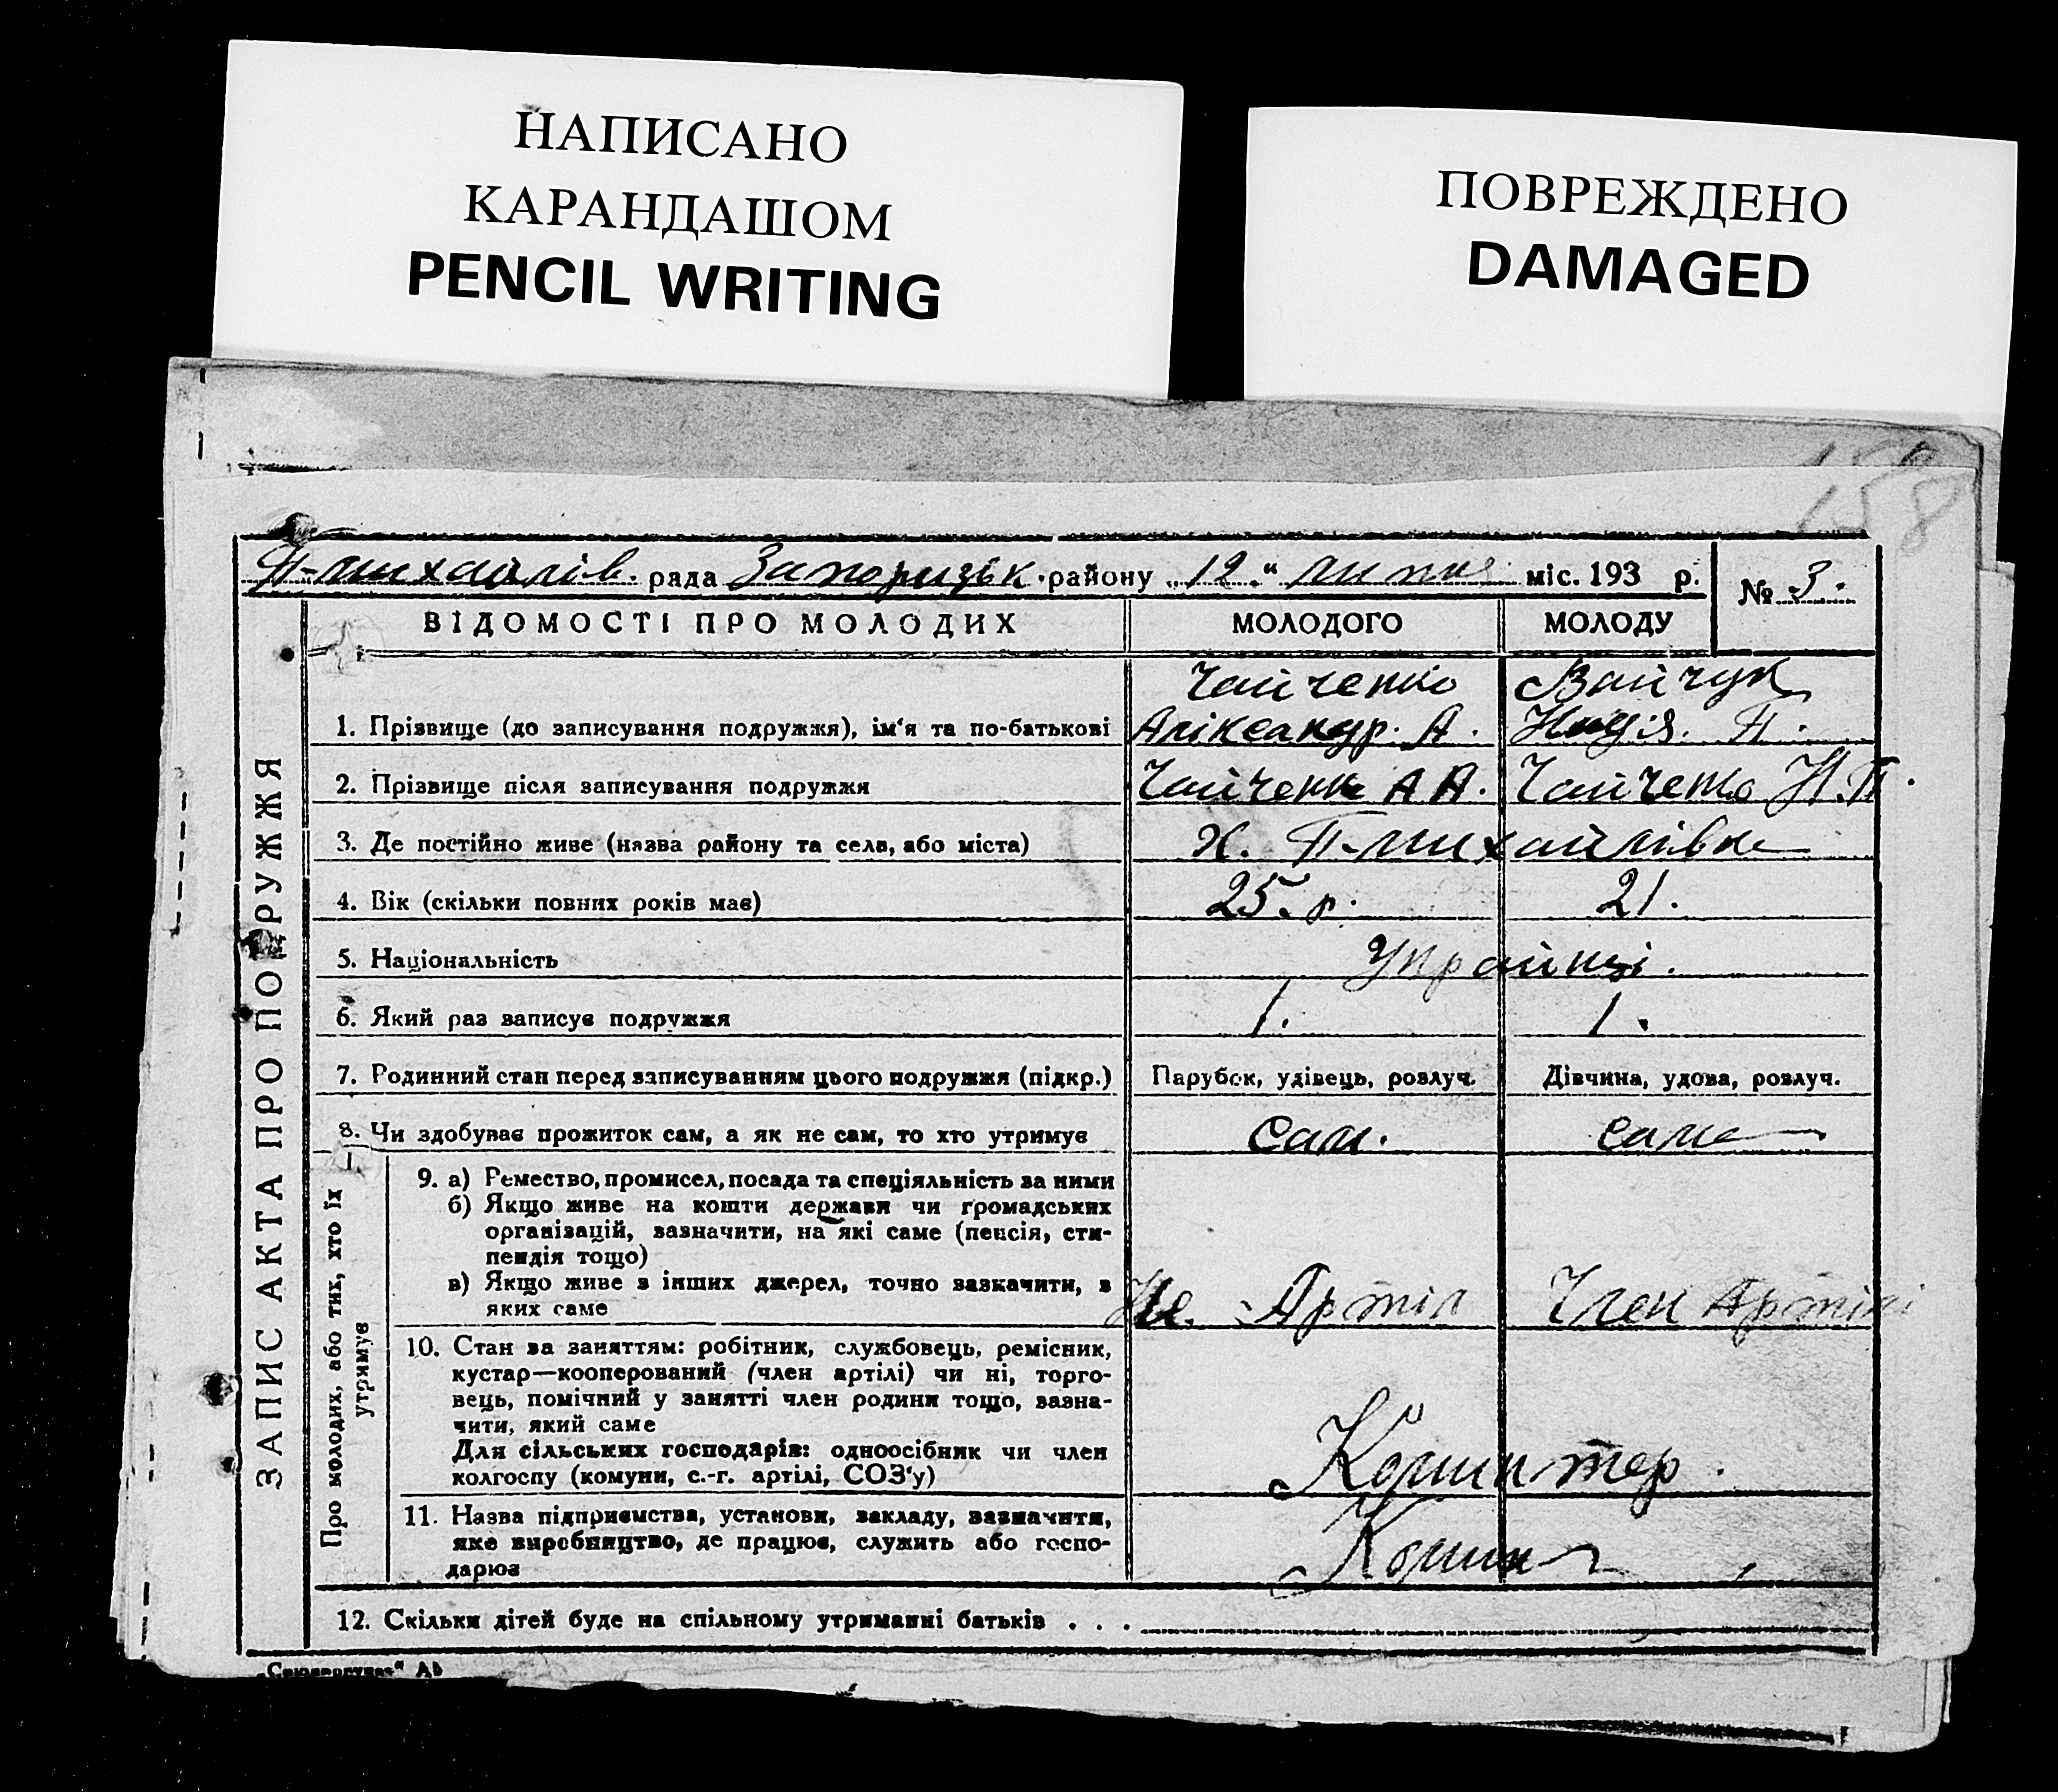 НАПИСАНО
КАРАНДАШОМ
PENCIL WRITING
ПОВРЕЖДЕНО
DAMAGED
158
П-михайлів. рада Запоризьк. району „12“ липня міс. 193 р.
№ 3.
ВІДОМОСТІ ПРО МОЛОДИХ МОЛОДОГО МОЛОДУ
Чайченко Вайчук
1. Прізвище (до записування подружжя), ім‘я та по-батькові Аліксандр. А. Надія. П.
2. Прізвище після записування подружжя Чайченко А А. Чайченко Н.П.
3. Де постійно живе (назва району та села, або міста) х. П-михайлівка
4. Вік (скільки повних років має) 25. р. 21.
5. Національність Українці.
6. Який раз записує подружжя 1. 1.
7. Родинний стан перед записуванням цього подружжя (підкр.) Парубок, удівець, розлуч. Дівчина, удова, розлуч.
8. Чи здобуває прожиток сам, а як не сам, то хто утримує сам. сама
9. а) Ремество, промисел, посада та спеціяльність за ними
б) Якщо живе на кошти держави чи громадських
організацій, зазначити, на які саме (пенсія, сти-
пендія тощо)
в) Якщо живе з інших джерел, точно зазначити, з
яких саме Артіл Член Артілі
10. Стан за заняттям: робітник, службовець, ремісник,
кустар—кооперований (член артілі) чи ні, торго-
вець, помічний у занятті член родини тощо, зазна-
чити, який саме
Для сільських господарів: одноосібник чи член
колгоспу (комуни, с.-г. артілі, СОЗ‘у) Комінтер.
11. Назва підприємства, установи, закладу, зазначити,
яке виробництво, де працює, служить або госпо-
дарює
12. Скільки дітей буде на спільному утриманні батьків . . .
ЗАПИС АКТА ПРО ПОДРУЖЖЯ
Про молодих, або тих, хто їх
утримує